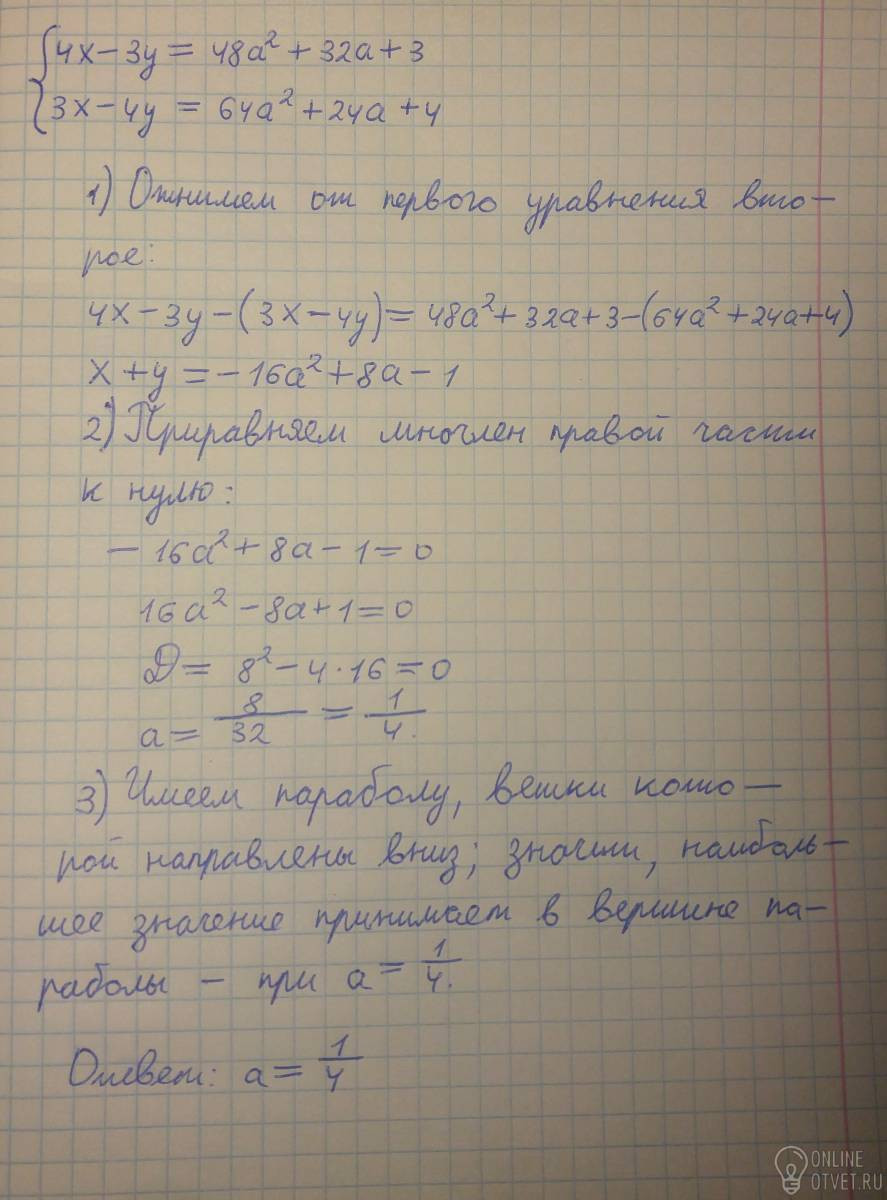 {4x - 3y = 48a² + 32a + 3
3x - 4y = 64a² + 24a + 4
1) Отнимем от первого уравнения вто-
рое:
4x - 3y - (3x - 4y) = 48a² + 32a + 3 - (64a² + 24a + 4)
x + y = -16a² + 8a - 1
2) Приравняем многлен правой части
к нулю:
-16a² + 8a - 1 = 0
16a² - 8a + 1 = 0
D = 8² - 4·16 = 0
a = 8/32 = 1/4.
3) Имеем параболу, ветки кото-
рой направлены вниз; значит, наиболь-
шее значение принимает в вершине па-
раболы - при a = 1/4.
Ответ: a = 1/4
ONLINE
OTVET.RU